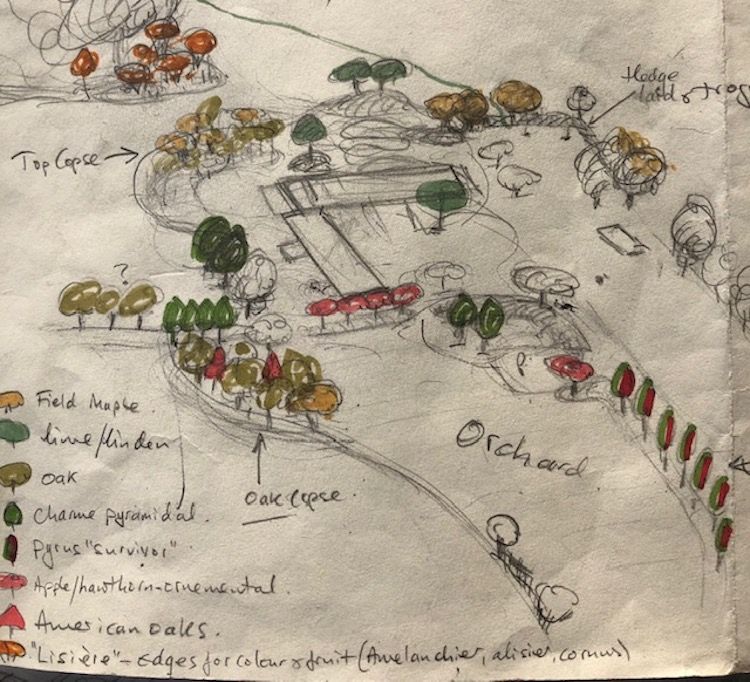 Hedge
laid &
Top Copse
?
P.
Orchard
Oak Copse
Field Maple
lime/linden
oak
Charme pyramidal.
Pyrus "survivor"
Apple/hawthorn-ornemental.
American oaks.
"Lisière" - edges for colour & fruit (Amelanchier, alisier, cornus)